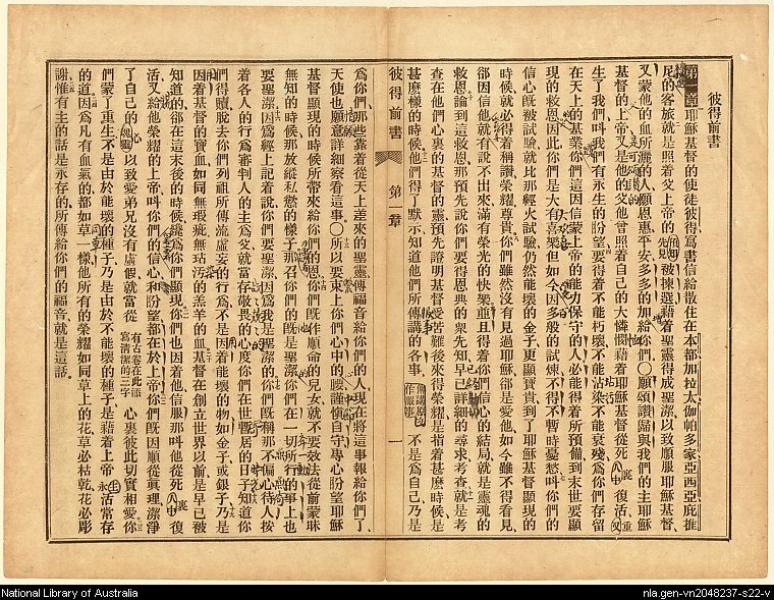 彼得前書
第一章 耶穌基督的使徒彼得寫書信給散住在本都加拉太伽帕多家亞西亞庇推
尼的客旅就是照着父上帝的先見被揀選藉着聖靈得成聖潔以致順服耶穌基督
又蒙他的血所灑的人願恩惠平安多多的加給你們○願頌讚歸與我們的主耶穌
基督的上帝又是他的父他曾照着自己的大憐憫藉着耶穌基督從死裏復活重
生了我們叫我們有永生的盼望要得着不能朽壞不能沾染不能衰殘爲你們存留
在天上的基業你們這因信蒙上帝的能力保守的人必能得着所預備到末世要顯
現的救恩因此你們是大有喜樂但如今因多般的試煉不得不暫時憂愁叫你們的
信心旣被試驗就比那經火試驗仍然能壞的金子更顯寶貴到了耶穌基督顯現的
時候就必得着稱讚榮耀尊貴你們雖然沒有見過耶穌卻是愛他如今雖不得看見
卻因信他就有說不出來滿有榮光的快樂並且得着你們信心的結局就是靈魂的
救恩論到這救恩那預先說你們要得恩典的衆先知早已詳細的尋求考查就是考
查在他們心裏的基督的靈預先證明基督受苦難後來得榮耀是指着甚麽時候是
甚麽樣的時候他們得了默示知道他們所傳講的各事 不是爲自己乃是
彼得前書 第一章 一
爲你們那些靠着從天上差來的聖靈傳福音給你們的人現在將這事報給你們了
天使也願意詳細察看這事○所以要束上你們心中的腰謹愼自守專心盼望耶穌
基督顯現的時候所帶來給你們的恩你們旣作順命的兒女就不要效法從前蒙昧
無知的時候那放縱私慾的樣子那召你們的旣是聖潔你們在一切所行的事上也
要聖潔因爲經上記着說你們要聖潔因爲我是聖潔的你們旣稱那不偏心待人按
着各人的行爲審判人的主爲父就當存敬畏的心度你們在世暫居的日子知道你
們得贖脫去你們列祖所傳流虛妄的行爲不是因着能壞的物如金子或銀子乃是
因着基督的寶血如同無瑕疵無玷汚的羔羊的血基督在創立世界以前是早已被
知道的卻在這末後的時候纔爲你們顯現你們也因着他信服那叫他從死裏復
活又給他榮耀的上帝叫你們的信心和盼望都在於上帝你們旣因順從眞理潔淨
了自己的心以致愛弟兄沒有虛假就當從 有古卷在此添寫淸潔的三字 心裏彼此切實相愛你
們蒙了重生不是由於能壞的種子乃是由於不能壞的種子是藉着上帝永活常存
的道因爲凡有血氣的都如草一樣他所有的榮耀如同草上的花草必枯乾花必彫
謝惟有主的話是永存的所傳給你們的福音就是這話
National Library of Australia
nla.gen-vn2048237-s22-v